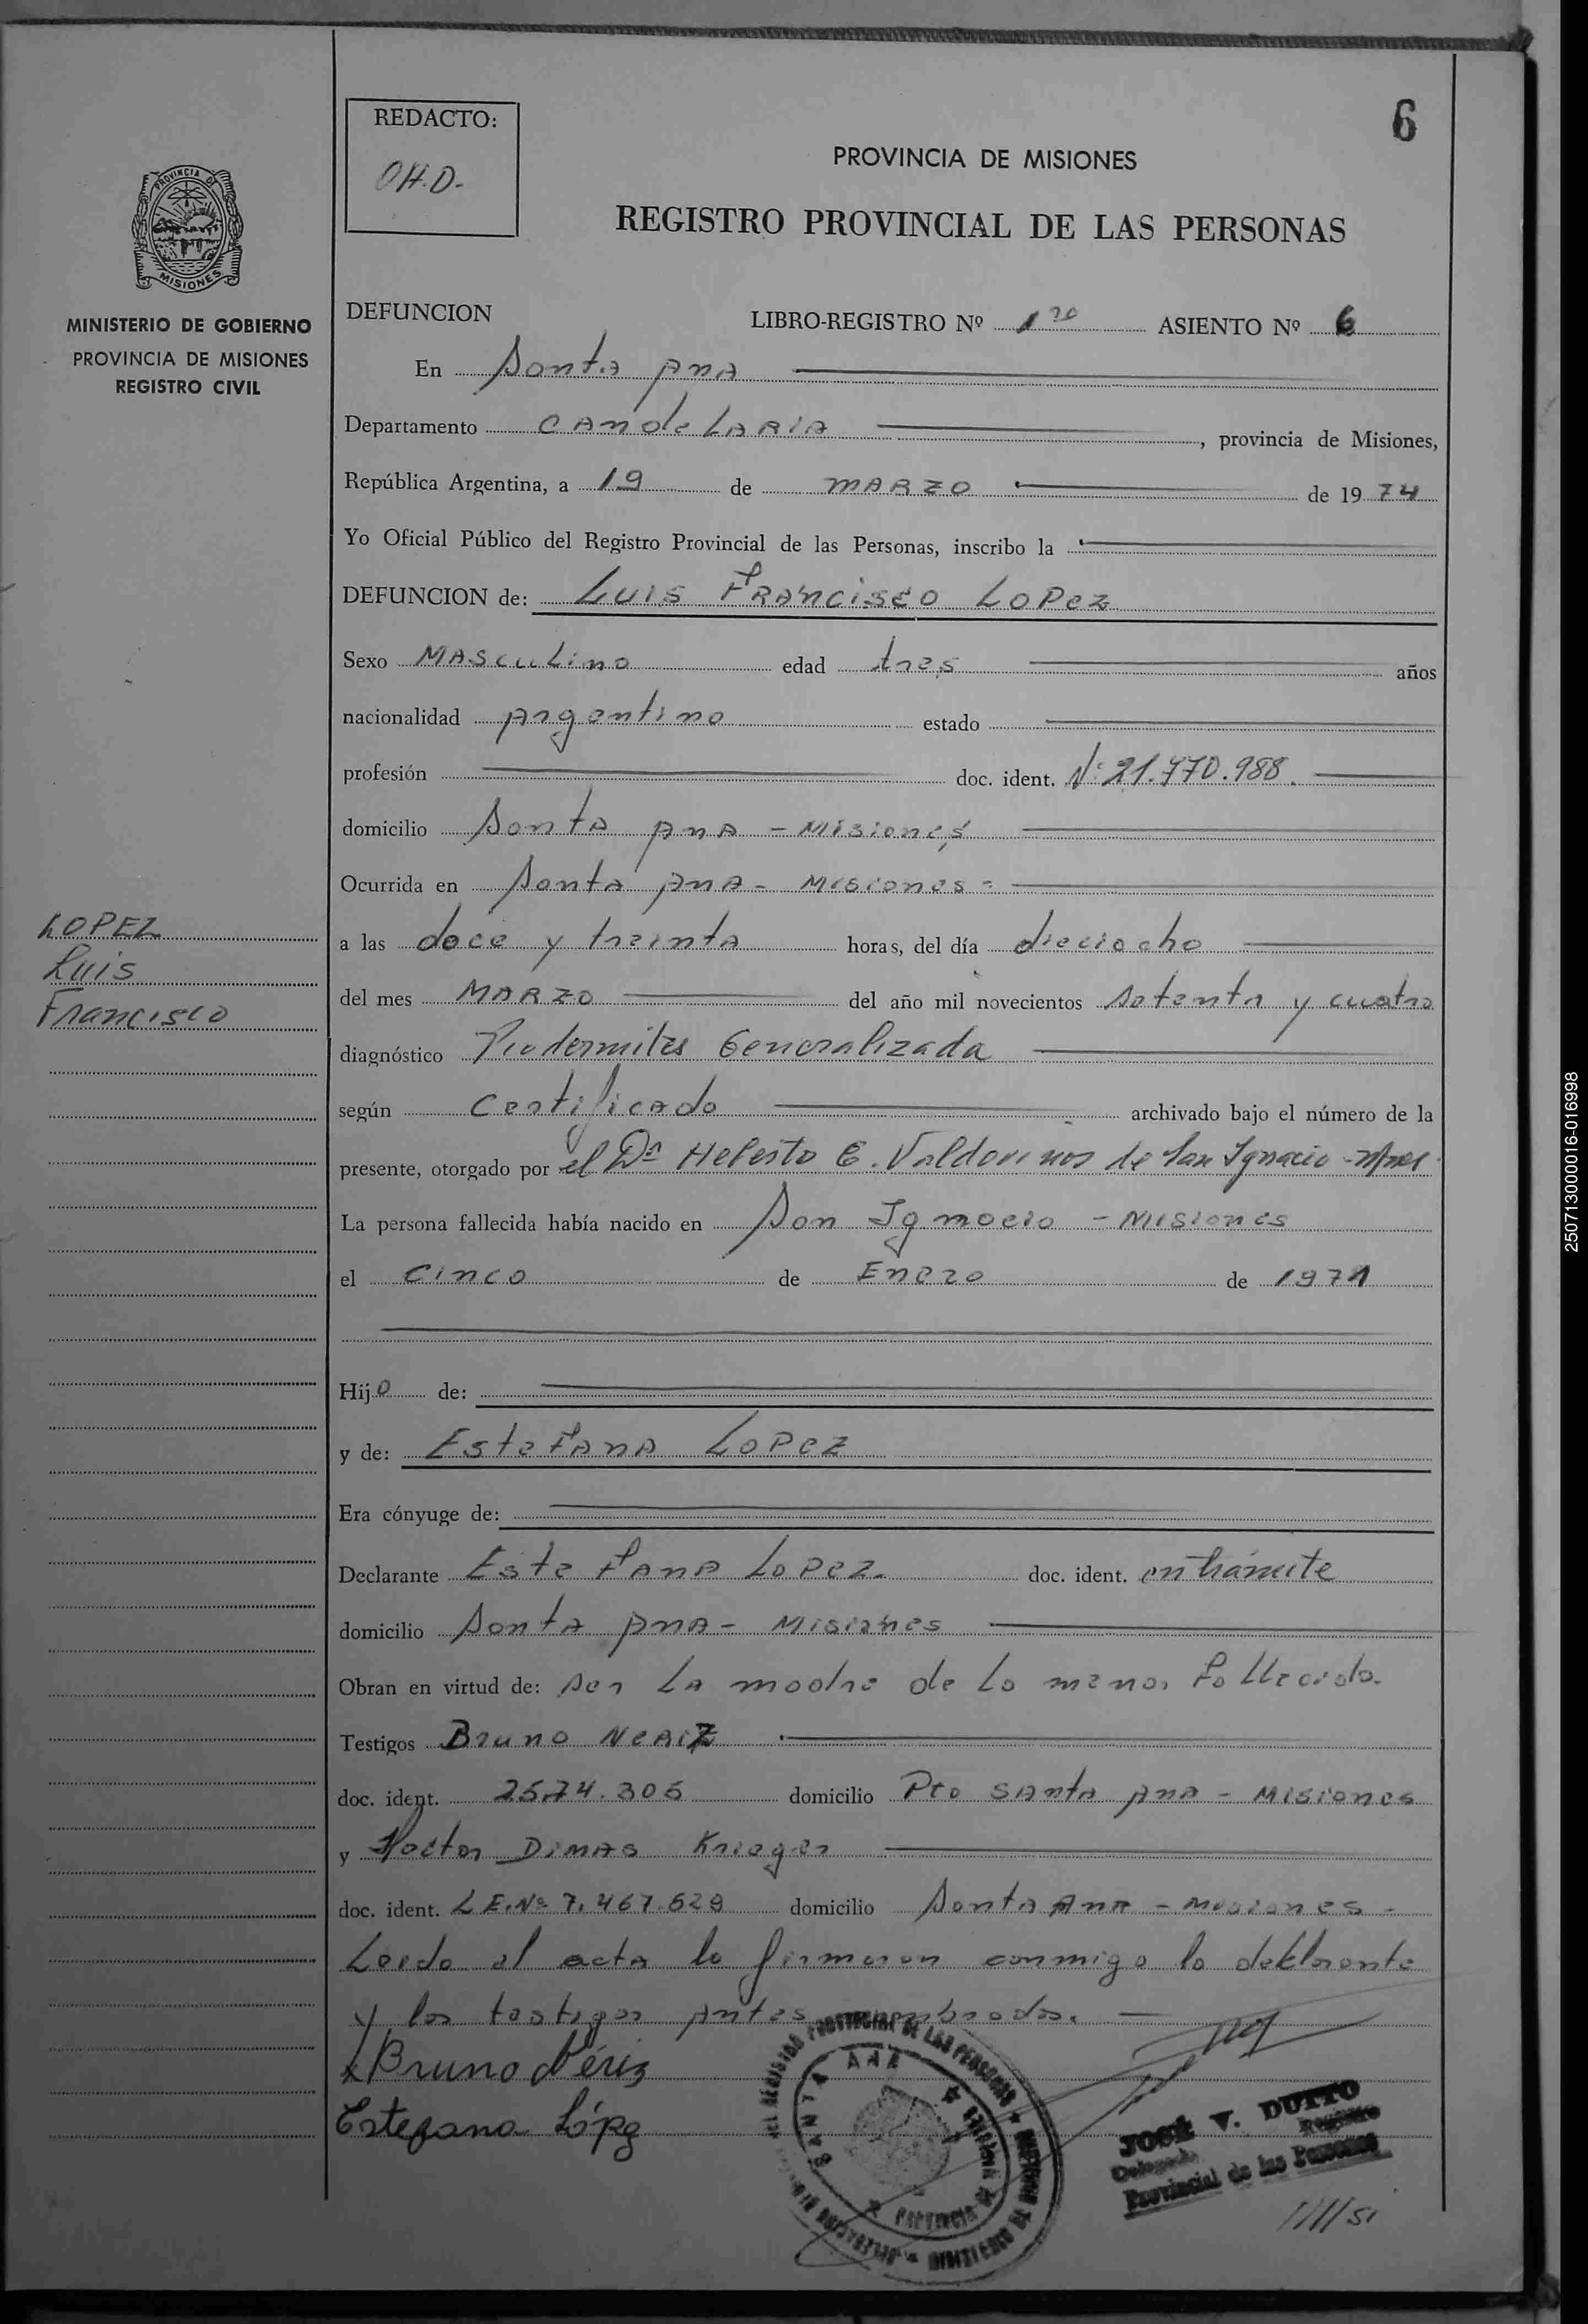 6
REDACTO:
O.H.D.-
PROVINCIA DE MISIONES
REGISTRO PROVINCIAL DE LAS PERSONAS
PROVINCIA DE
MISIONES
MINISTERIO DE GOBIERNO
PROVINCIA DE MISIONES
REGISTRO CIVIL
LOPEZ
Luis
Francisco
DEFUNCION LIBRO-REGISTRO Nº 1 ASIENTO Nº 6
En Santa Ana
Departamento CANdeLARIA, provincia de Misiones,
República Argentina, a 19 de MARZO de 1974
Yo Oficial Público del Registro Provincial de las Personas, inscribo la
DEFUNCION de: Luis Francisco Lopez
Sexo Masculino edad tres años
nacionalidad Argentino estado
profesión doc. ident. Nº 21.770.988.
domicilio Santa Ana - Misiones
Ocurrida en Santa Ana - Misiones -
a las doce y treinta horas, del día dieciocho
del mes MARZO del año mil novecientos setenta y cuatro
diagnóstico Piodermites Generalizada
según Certificado archivado bajo el número de la
presente, otorgado por el Dr Heberto E. Valdovinos de San Ignacio - Mnes.
La persona fallecida había nacido en San Ignacio - Misiones
el cinco de Enero de 1971
Hijo de:
y de: Estefana Lopez
Era cónyuge de:
Declarante Estefana Lopez. doc. ident. en trámite
domicilio Santa Ana - Misiones
Obran en virtud de: ser la madre de lo menor fallecido.
Testigos Bruno NeRiz
doc. ident. 2574.305 domicilio Pto Santa Ana - Misiones
y Hector Dimas Krieger
doc. ident. L.E.Nº 7.467.629 domicilio Santa Ana - Misiones -
Leida el acta lo firmaron conmigo la deklarante
y los testigos antes nombrados.
Bruno Nériz
Estefana Lópg
SANTA ANA
JOSÉ V. DUTTO
Delegado Registro
Provincial de las Personas
250713000016-016998